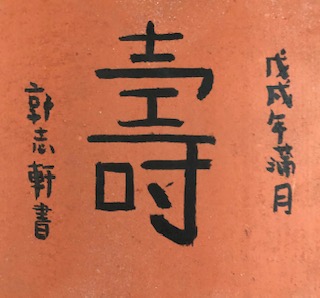 戊戌年滿月
壽
郭志軒書